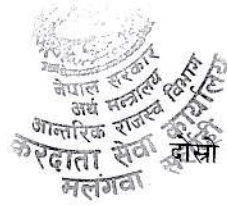 नेपाल सरकार
अर्थ मन्त्रालय
आन्तरिक राजस्व विभाग
करदाता सेवा कार्यालय
मलंगवा
दोस्रो